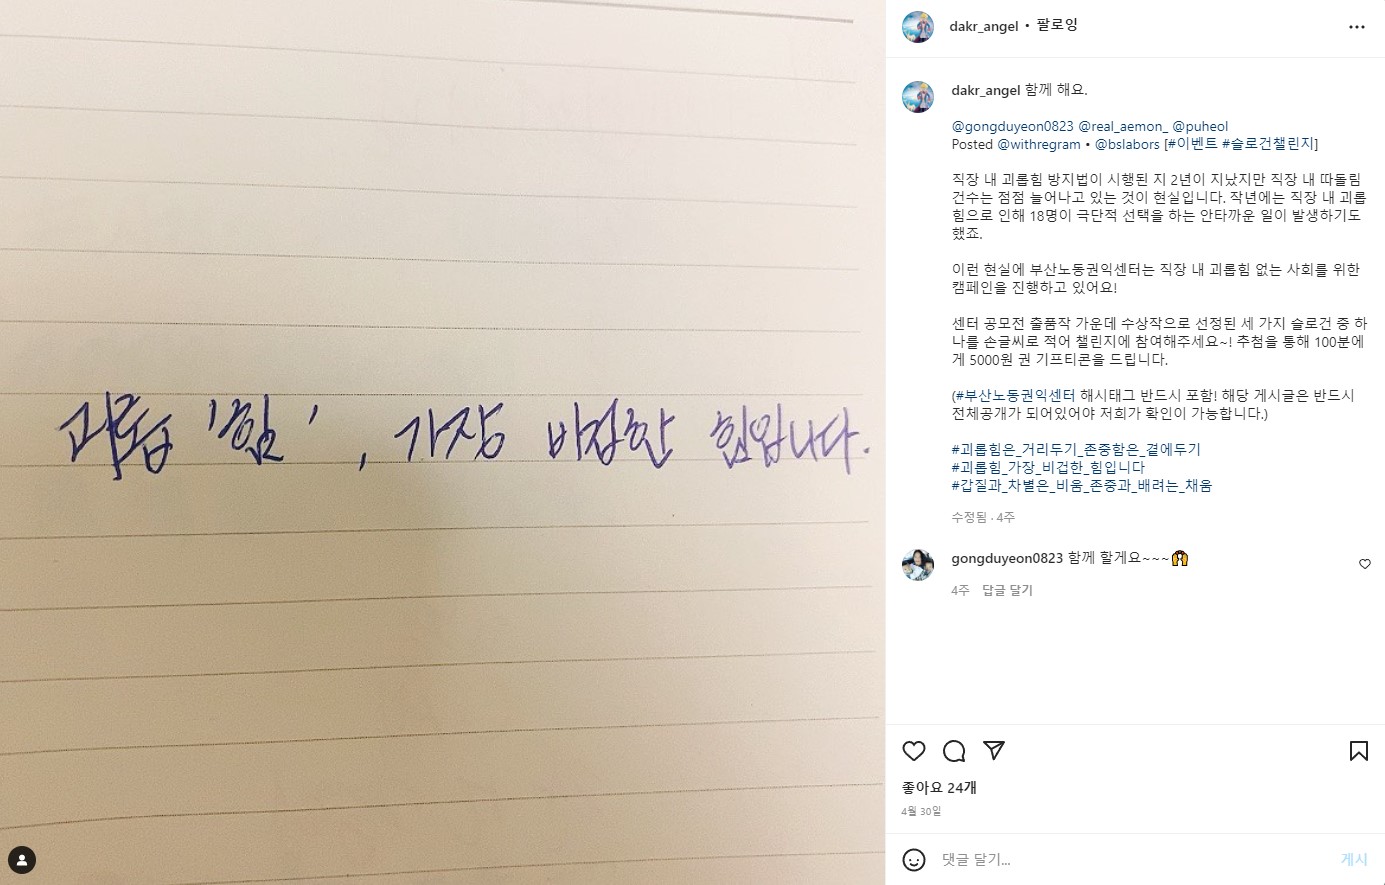 괴롭 '힘', 가장 비겁한 힘입니다.
dakr_angel • 팔로잉
dakr_angel 함께 해요.
@gongduyeon0823 @real_aemon_ @puheol
Posted @withregram • @bslabors [#이벤트 #슬로건챌린지]
직장 내 괴롭힘 방지법이 시행된 지 2년이 지났지만 직장 내 따돌림
건수는 점점 늘어나고 있는 것이 현실입니다. 작년에는 직장 내 괴롭
힘으로 인해 18명이 극단적 선택을 하는 안타까운 일이 발생하기도
했죠.
이런 현실에 부산노동권익센터는 직장 내 괴롭힘 없는 사회를 위한
캠페인을 진행하고 있어요!
센터 공모전 출품작 가운데 수상작으로 선정된 세 가지 슬로건 중 하
나를 손글씨로 적어 챌린지에 참여해주세요~! 추첨을 통해 100분에
게 5000원 권 기프티콘을 드립니다.
(#부산노동권익센터 해시태그 반드시 포함! 해당 게시글은 반드시
전체공개가 되어있어야 저희가 확인이 가능합니다.)
#괴롭힘은_거리두기_존중함은_곁에두기
#괴롭힘_가장_비겁한_힘입니다
#갑질과_차별은_비움_존중과_배려는_채움
수정됨 · 4주
gongduyeon0823 함께 할게요~~~🙌
4주 답글 달기
좋아요 24개
4월 30일
댓글 달기...
게시